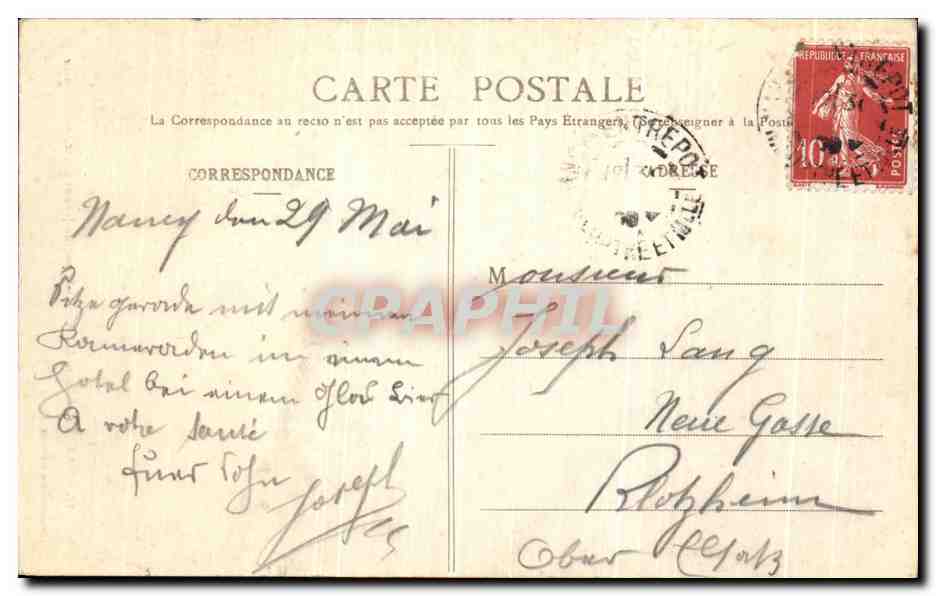 CARTE POSTALE
La Correspondance au recto n'est pas acceptée par tous les Pays Étrangers. (Se renseigner à la Poste
CORRESPONDANCE
ADRESSE
RÉPUBLIQUE FRANÇAISE
10
POSTES
NANCY-ENTREPOT
MEURTHE ET MLLE
Nancy den 29 Mai
Sitze gerade mit meinen
Kameraden in einem
Hotel bei einem Glas Bier
A votre santé
Euer Sohn
Joseph
Monsieur
Joseph Lang
Neue Gasse
Blotzheim
Ober Elsatz
CPAPHIL